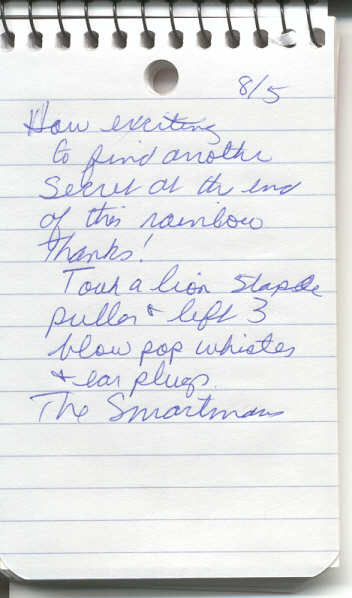 8/5
How exciting
to find another
secret at the end
of this rainbow
thanks!
Took a lion staple
puller & left 3
blow pop whistles
& ear plugs.
The Smartmans